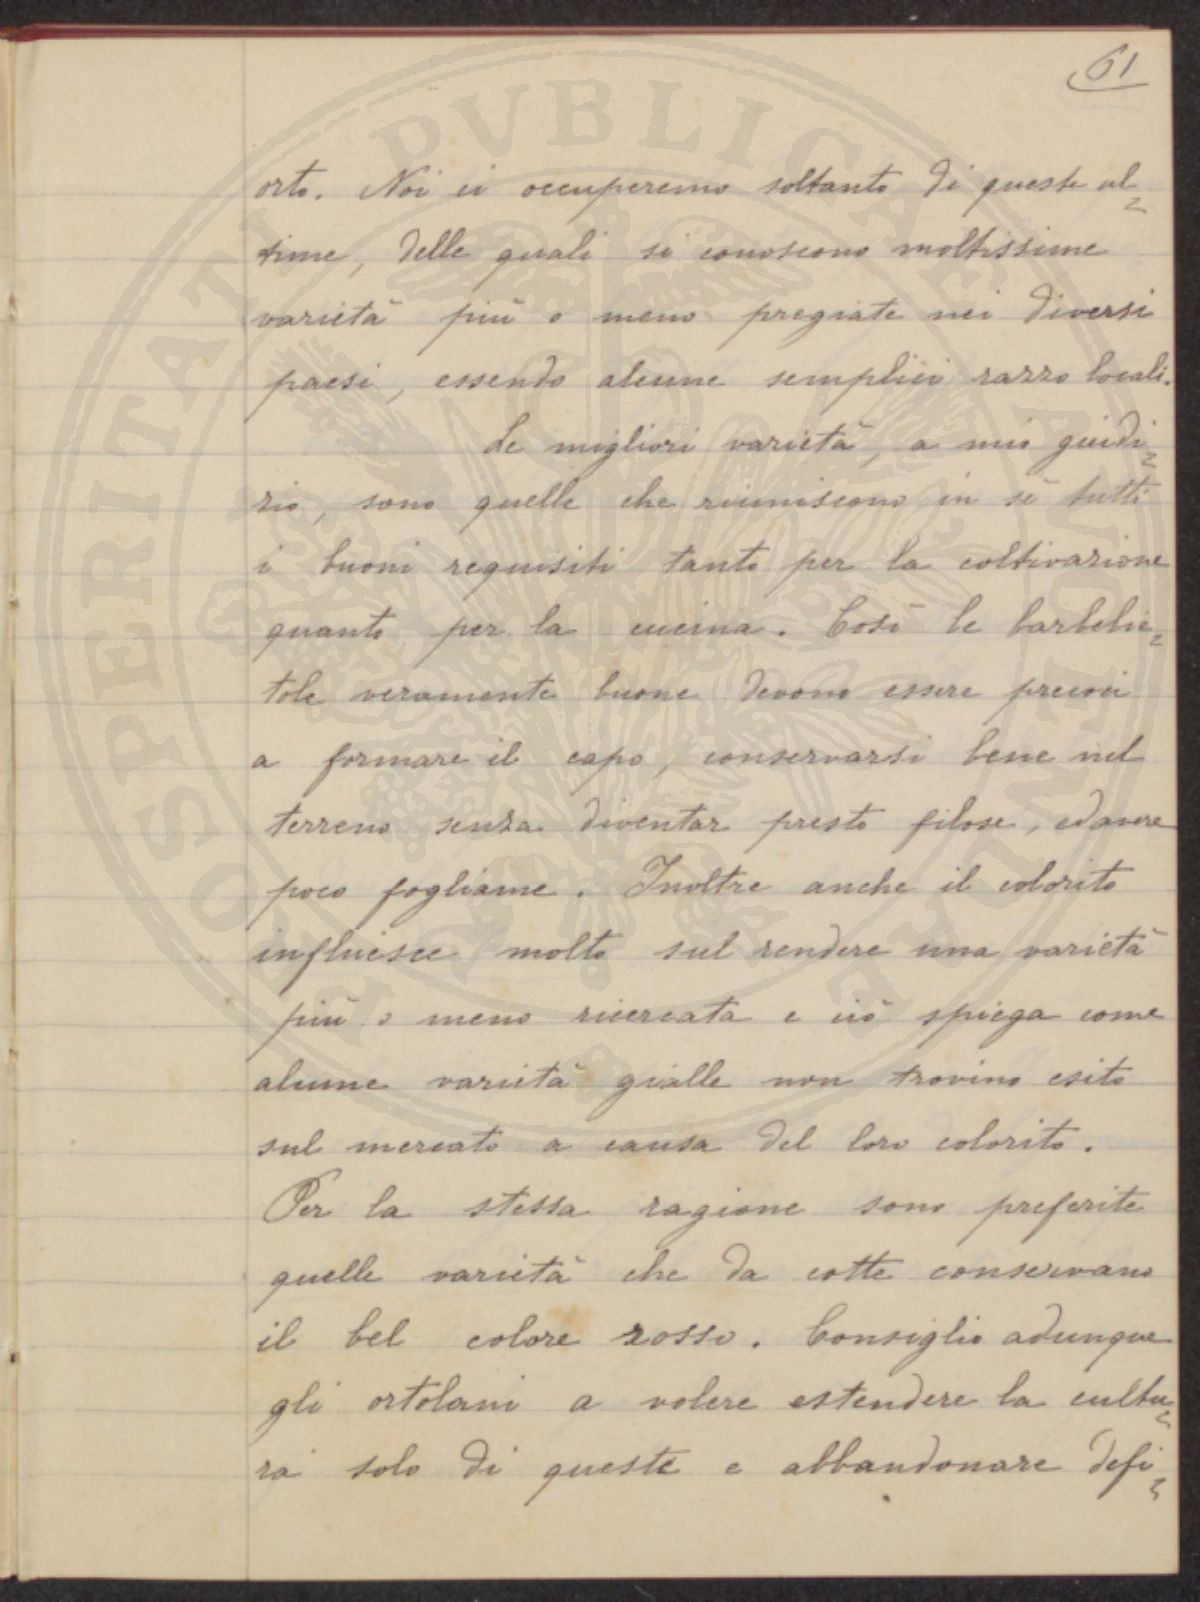 61
orto. Noi ci occuperemo soltanto di queste ul=
time, delle quali si conoscono moltissime
varietà più o meno pregiate nei diversi
paesi, essendo alcune semplici razze locali.
Le migliori varietà, a mio giudi=
zio, sono quelle che riuniscono in sè tutti
i buoni requisiti tanto per la coltivazione
quanto per la cucina. Così le barbebie=
tole veramente buone devono essere precoci
a formare il capo, conservarsi bene nel
terreno senza diventar presto filose, ed avere
poco fogliame. Inoltre anche il colorito
influisce molto sul rendere una varietà
più o meno ricercata e ciò spiega come
alcune varietà gialle non trovino esito
sul mercato a causa del loro colorito.
Per la stessa ragione sono preferite
quelle varietà che da cotte conservano
il bel colore rosso. Consiglio adunque
gli ortolani a volere estendere la cultu=
ra solo di queste e abbandonare defi=
PROSPERITATI PVBLICAE AVGENDAE